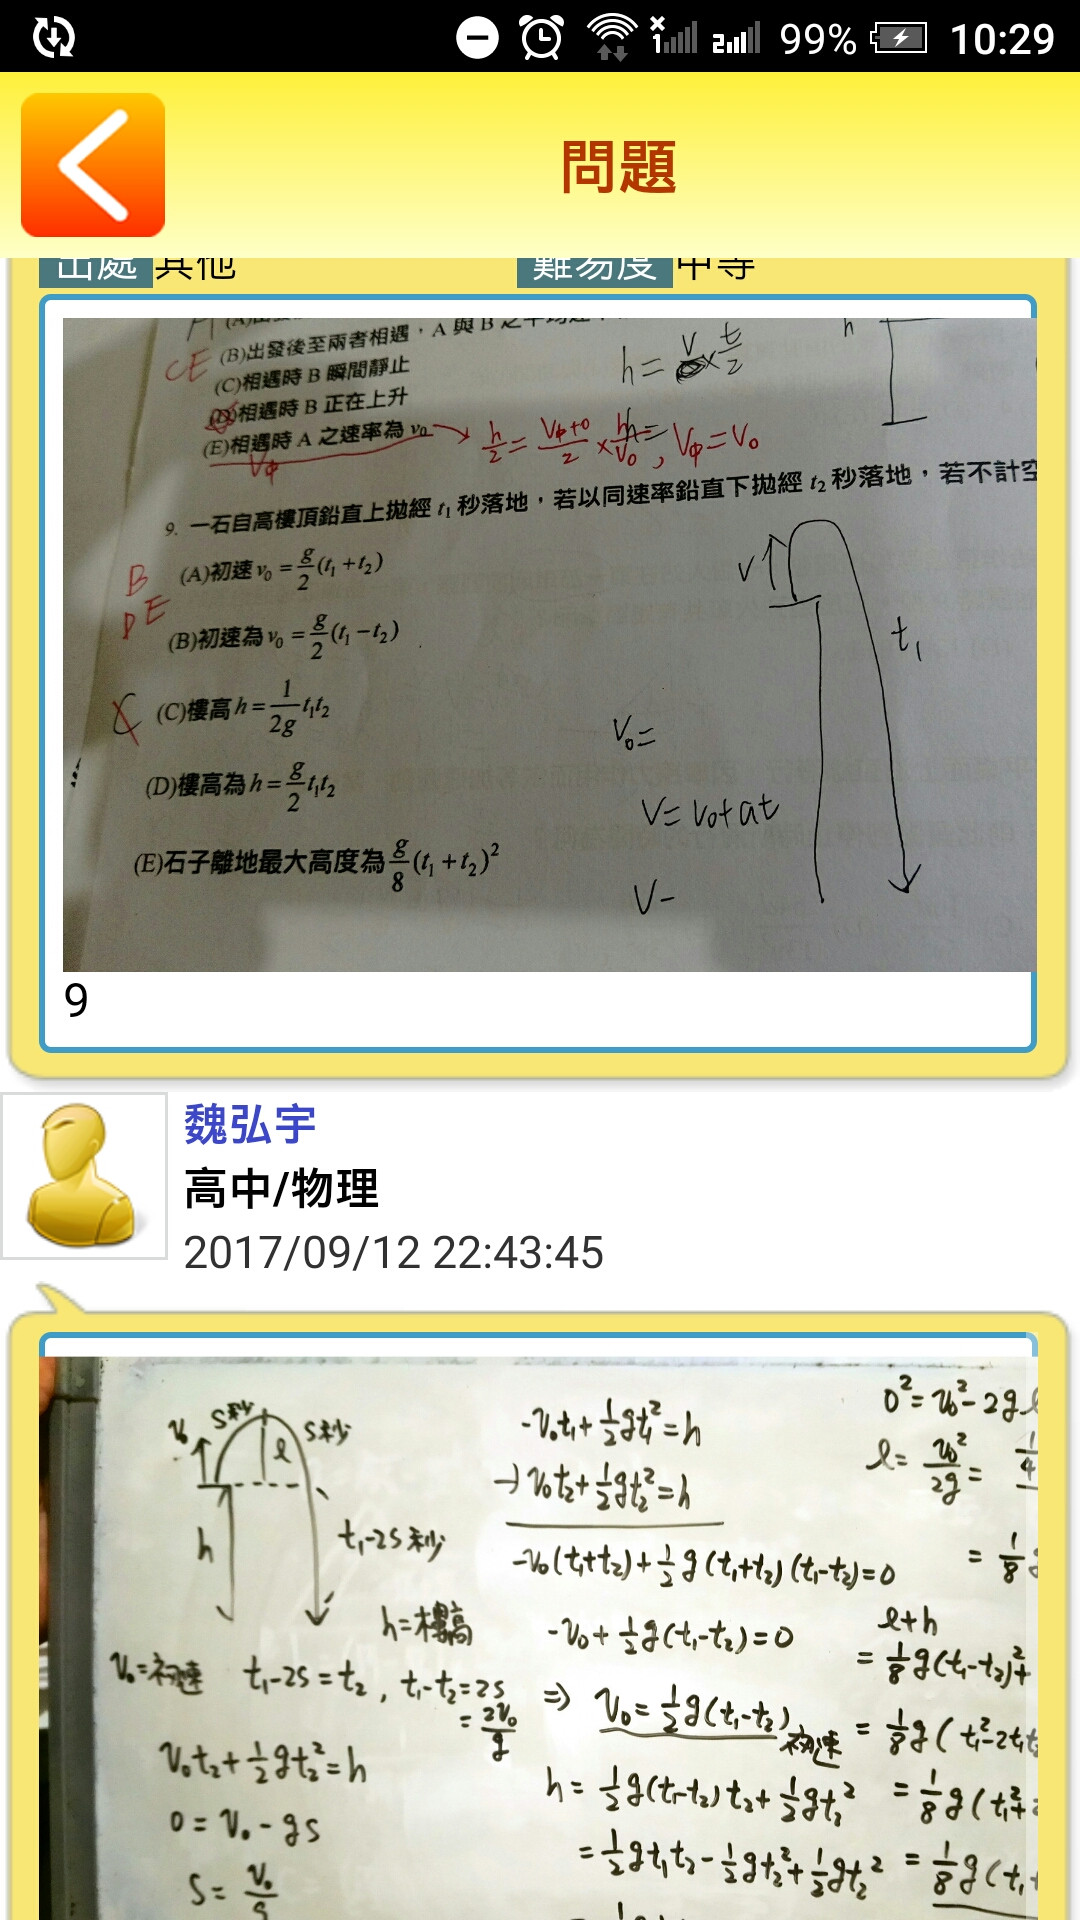 99% 10:29
問題
出處 其他 難易度 中等
(B)出發後至兩者相遇，A 與 B 之平均速
CE
(C)相遇時 B 瞬間靜止
(D)相遇時 B 正在上升
(E)相遇時 A 之速率為 v₀
h = V × t/2
h
V中
h/2 = (V中+0)/2 × h/V₀ , V中 = V₀
9. 一石自高樓頂鉛直上拋經 t₁ 秒落地，若以同速率鉛直下拋經 t₂ 秒落地，若不計空
B
D E
(A)初速 v₀ = g/2 (t₁ + t₂)
(B)初速為 v₀ = g/2 (t₁ − t₂)
(C)樓高 h = 1/2g t₁t₂
(D)樓高為 h = g/2 t₁t₂
(E)石子離地最大高度為 g/8 (t₁ + t₂)²
V
t₁
V₀=
V= V₀+at
V-
9
魏弘宇
高中/物理
2017/09/12 22:43:45
V₀ S秒 S秒
l
h
t₁-2S秒
h=樓高
V₀=初速 t₁-2S=t₂ , t₁-t₂=2S
= 2V₀/g
V₀t₂+½gt₂²=h
0=V₀-gS
S= V₀/g
-V₀t₁+½gt₁²=h
-) V₀t₂+½gt₂²=h
-V₀(t₁+t₂)+½g(t₁+t₂)(t₁-t₂)=0
-V₀+½g(t₁-t₂)=0
⇒ V₀=½g(t₁-t₂) 初速
h=½g(t₁-t₂)t₂+½gt₂²
=½gt₁t₂-½gt₂²+½gt₂²
0²=V₀²-2gl
l= V₀²/2g = 1/4
= 1/8 g
l+h
=⅛g(t₁-t₂)²+
=⅛g(t₁²-2t₁t₂
=⅛g(t₁²+2
=⅛g(t₁+